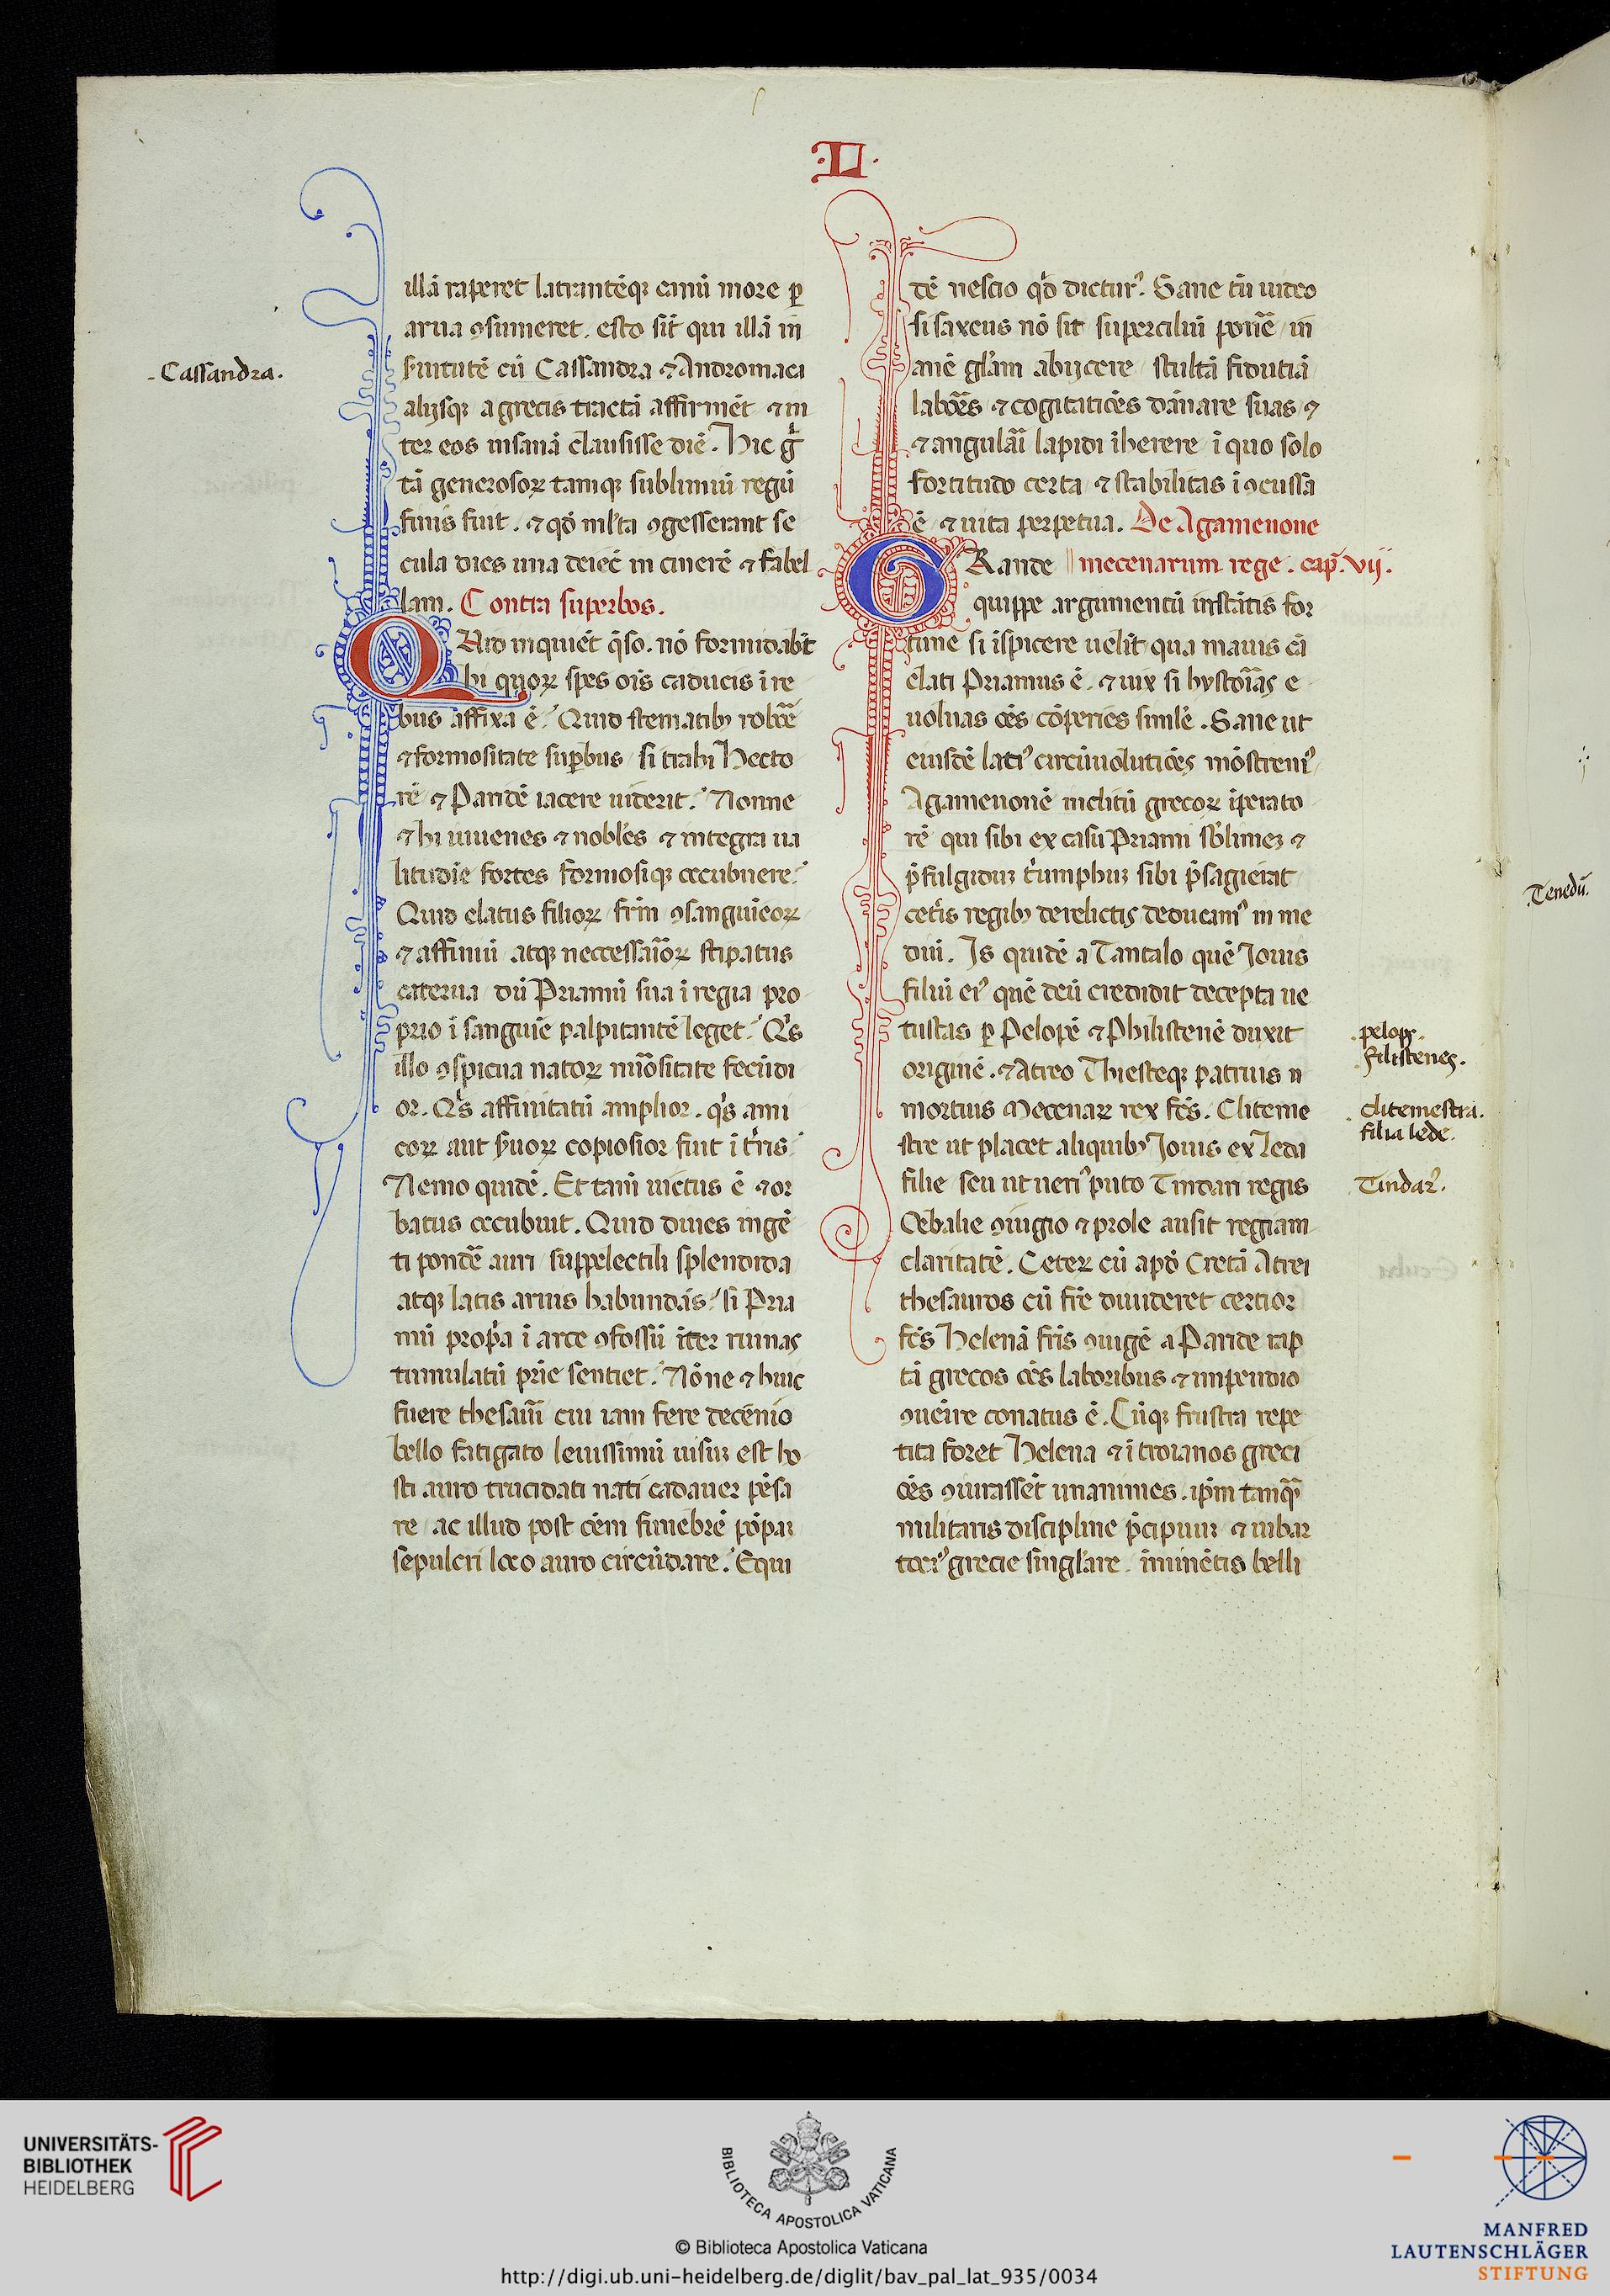 ·II·
illā raperet latrantēqꝫ canū more ꝑ
arua ꝯsumeret. esto sīt qui illā in
ẜuitutē cū Cassandra ⁊ Andromaca
alijsqꝫ a grecis tractā affirmēt ⁊ in
ter eos insanā clausisse diē. Hic gͦ
tā generosoꝝ tamqꝫ sublimiū regū
finis fuit. ⁊ qđ ml'ta ꝯgesserant se
cula dies una deiec̄ in cinerē ⁊ fabel
lam. Contra superbos.
QUid inquiēt q̄so. nō formidabt̄
hi quoꝝ spes oīs caducis ī re
bus affixa ē. Quid stematibꝫ robore
⁊ formositate supbus si trahi Hecto
rē ⁊ Paridē iacere uiderit. Nonne
⁊ hi iuuenes ⁊ nobles ⁊ integra ua
litudīe fortes formosiqꝫ occubuere.
Quid elatus filioꝝ frm̄ ꝯsanguīeoꝝ
⁊ affiniū atqꝫ neccessaīoꝝ stipatus
caterua dū Priamū sua ī regia pro
prio ī sanguīe palpitantē leget. Qⁱs
illo ꝯspicua natoꝝ nūositate fecūdi
or. Qⁱs affinitatū amplior. qⁱs ami
coꝝ aut ẜuoꝝ copiosior fuit ī tr̄is.
Nemo quidē. Et tam̄ uictus ē ⁊ or
batus occubuit. Quid diues ingē
ti pondē auri suppelectili splendida
atqꝫ latis aruis habundās si Pria
mū propⁱa ī arce ꝯfossū īter ruinas
tumulatū prīe sentiet. Nōne ⁊ huic
fuere thesaurī cui iam fere decēnio
bello fatigato leuissimū uisuꝫ est ho
sti auro trucidati nati cadauer pēsa
re ac illud post cēm funebrē pōpaꝫ
sepulcri loco auro circūdare. Equi
dē nescio qđ dicturꝰ. Sane tū uideo
si saxeus nō sit superciliū ponē in
anē gl'am abijcere stultā fidutiā
laboēs ⁊ cogitatiōes dānare suas ⁊
⁊ angulārī lapidi īherere ī quo solo
fortitudo certa ⁊ stabilitas īꝯcussa
ē ⁊ uita perpetua. De Agamenone
GRande mecenarum rege. cap̄. vij.
quippe argumentū instātis for
tune si īspicere uelit qua mauis eā
elati Priamus ē. ⁊ uix si hystoīas e
uoluas oēs cōperies similē. Sane ut
eiusdē latiꝰ circūuolutiōes mōstremꝰ
Agamenonē inclitū grecoꝝ īperato
rē qui sibi ex casu Priami sb̄limeꝫ ⁊
p̄fulgiduꝫ tⁱumphuꝫ sibi p̄sagierat
cetⁱs regibꝫ derelictis deducamꝰ in me
diū. Is quidē a Tantalo quē Iouis
filiū eiꝰ quē deū credidit decepta ue
tustas ꝑ Pelopē ⁊ Philistenē duxit
originē. ⁊ Atreo Thiesteqꝫ patruis n
mortuis Mecenaꝝ rex fc̄s. Cliteme
stre ut placet aliquibꝫ Iouis ex Leda
filie seu ut ueriꝰ puto Tindari regis
Oebalie ꝯiugio ⁊ prole ausit regiam
claritatē. Ceteꝝ cū apđ Cretā Atrei
thesauros cū fr̄e diuideret certior
fc̄s Helenā fr̄is ꝯiugē a Paride rap
tā grecos oēs laboribus ⁊ impendio
ꝯuenīre conatus ē. Cūqꝫ frustra repe
tita foret Helena ⁊ ī troianos greci
oēs ꝯiurassēt unanimes. ip̄m tanqꝫ
militaris discipline p̄cipuuꝫ ⁊ iubar
tociꝰ grecie singl'are. īminētis belli
.Cassandra.
.pelops.
.filistenes.
.clitemestra.
filia lede.
.Tindarꝰ.
.Tenedū.
UNIVERSITÄTS-
BIBLIOTHEK
HEIDELBERG
BIBLIOTECA APOSTOLICA VATICANA
© Biblioteca Apostolica Vaticana
http://digi.ub.uni-heidelberg.de/diglit/bav_pal_lat_935/0034
MANFRED
LAUTENSCHLÄGER
STIFTUNG